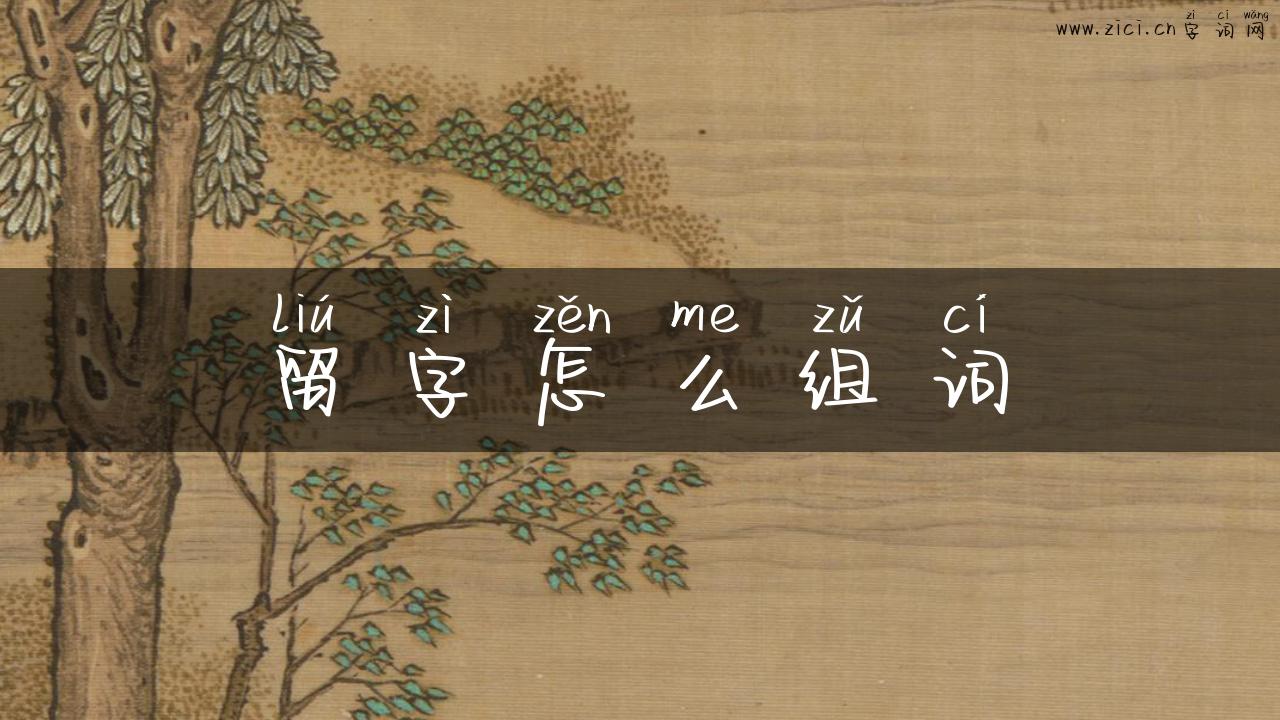 zì cí wǎng
www.zici.cn字词网
liú zì zěn me zǔ cí
留字怎么组词